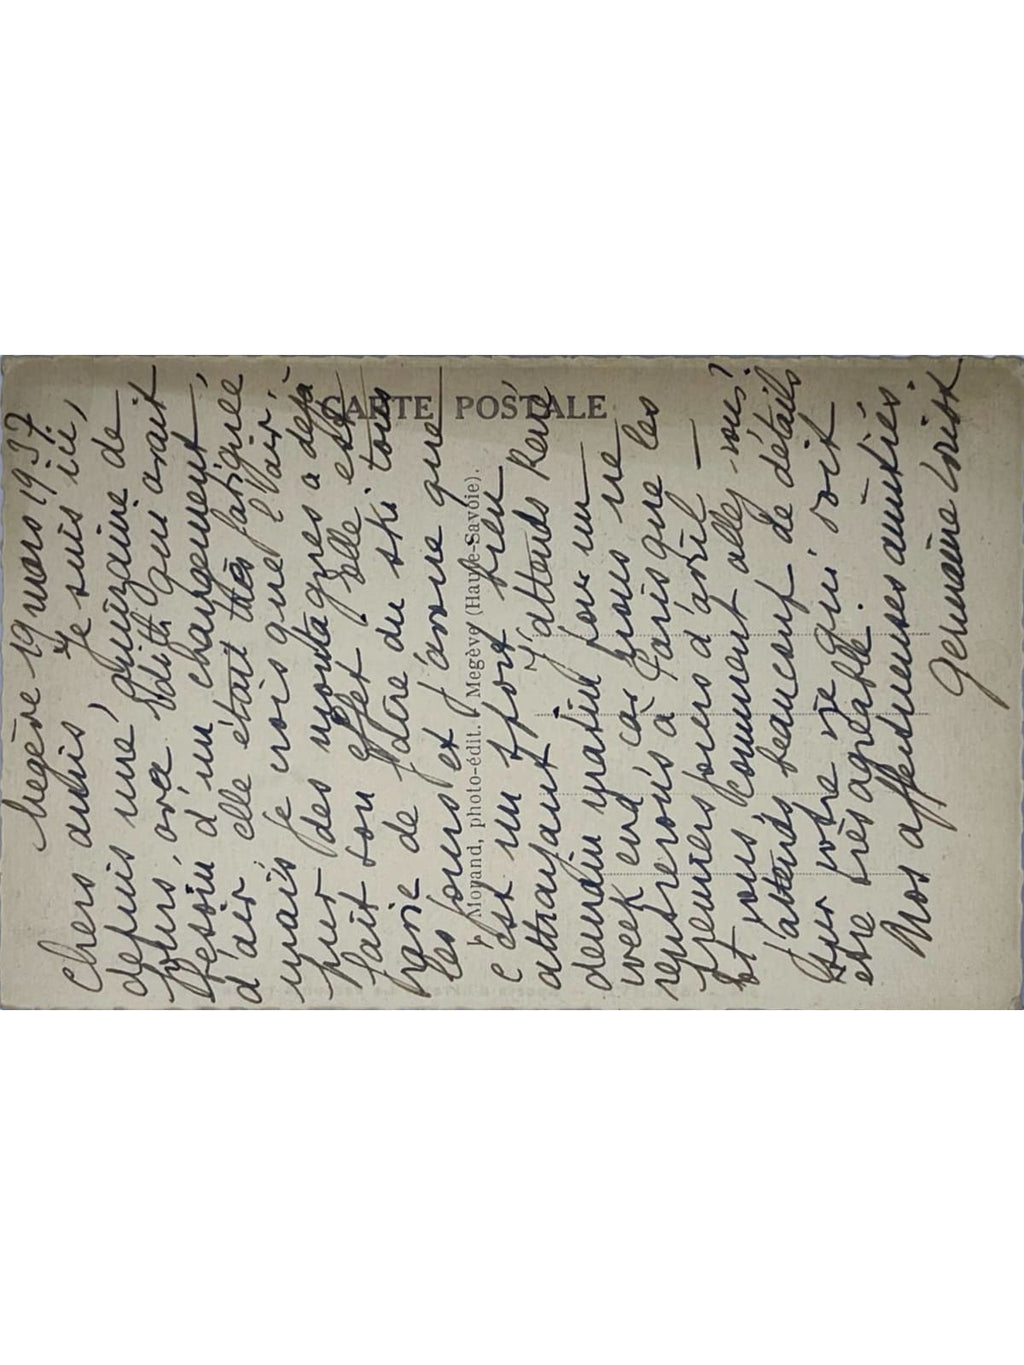 Megève 19 mars 1937
Chers amis, Je suis ici,
depuis une quinzaine de
jours, avec Edith qui avait
besoin d'un changement
d'air elle était très fatiguée
mais je crois que l'air
pur des montagnes a déjà
fait son effet. Elle est
ravie de faire du ski tous
les jours et j'avoue que
c'est un sport bien
attrayant. J'attends René
demain matin pour un
week end car nous ne
rentrerons à Paris que les
premiers jours d'avril —
Et vous, comment allez-vous?
J'attends beaucoup de détails
sur votre vie qui doit
être très agréable.
Nos affectueuses amitiés.
Germaine
CARTE POSTALE
Morand, photo-édit. Megève (Haute-Savoie).